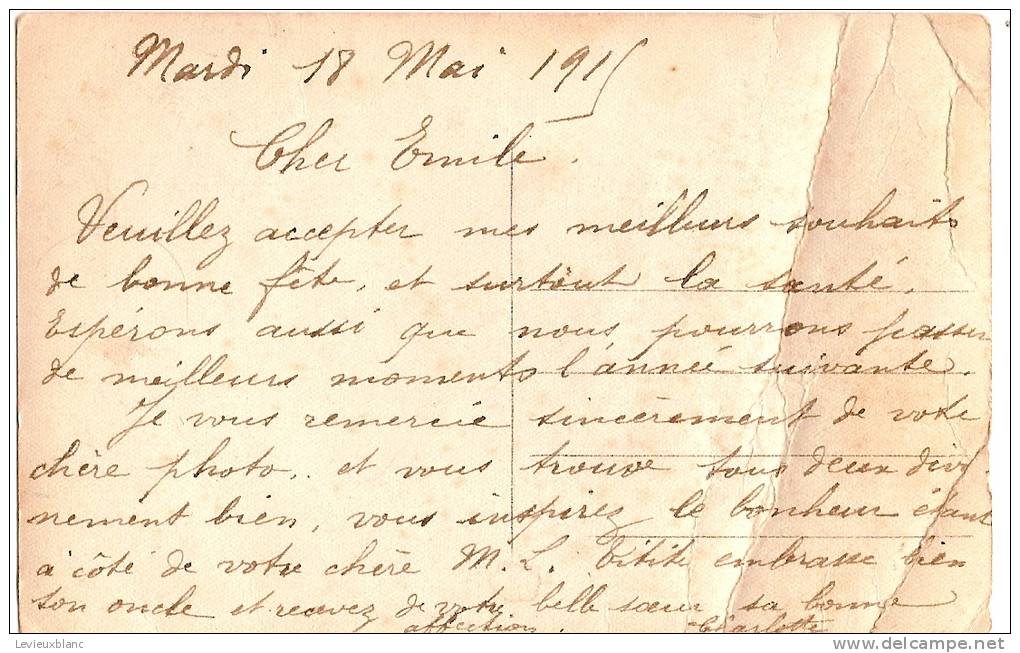 Mardi 18 Mai 1915
Cher Emile.
Veuillez accepter mes meilleurs souhaits
de bonne fête, et surtout la santé.
Espérons aussi que nous pourrons passer
de meilleurs moments l'année suivante.
Je vous remercie sincèrement de votre
chère photo, et vous trouve tous deux divi
nement bien, vous inspirez le bonheur étant
à côté de votre chère M. L. Titite embrasse bien
son oncle et recevez de votre belle sœur sa bonne
affection. Charlotte
Levieuxblanc
delcampe.net